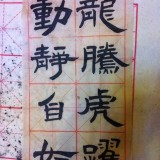 龍騰虎躍
動靜自如